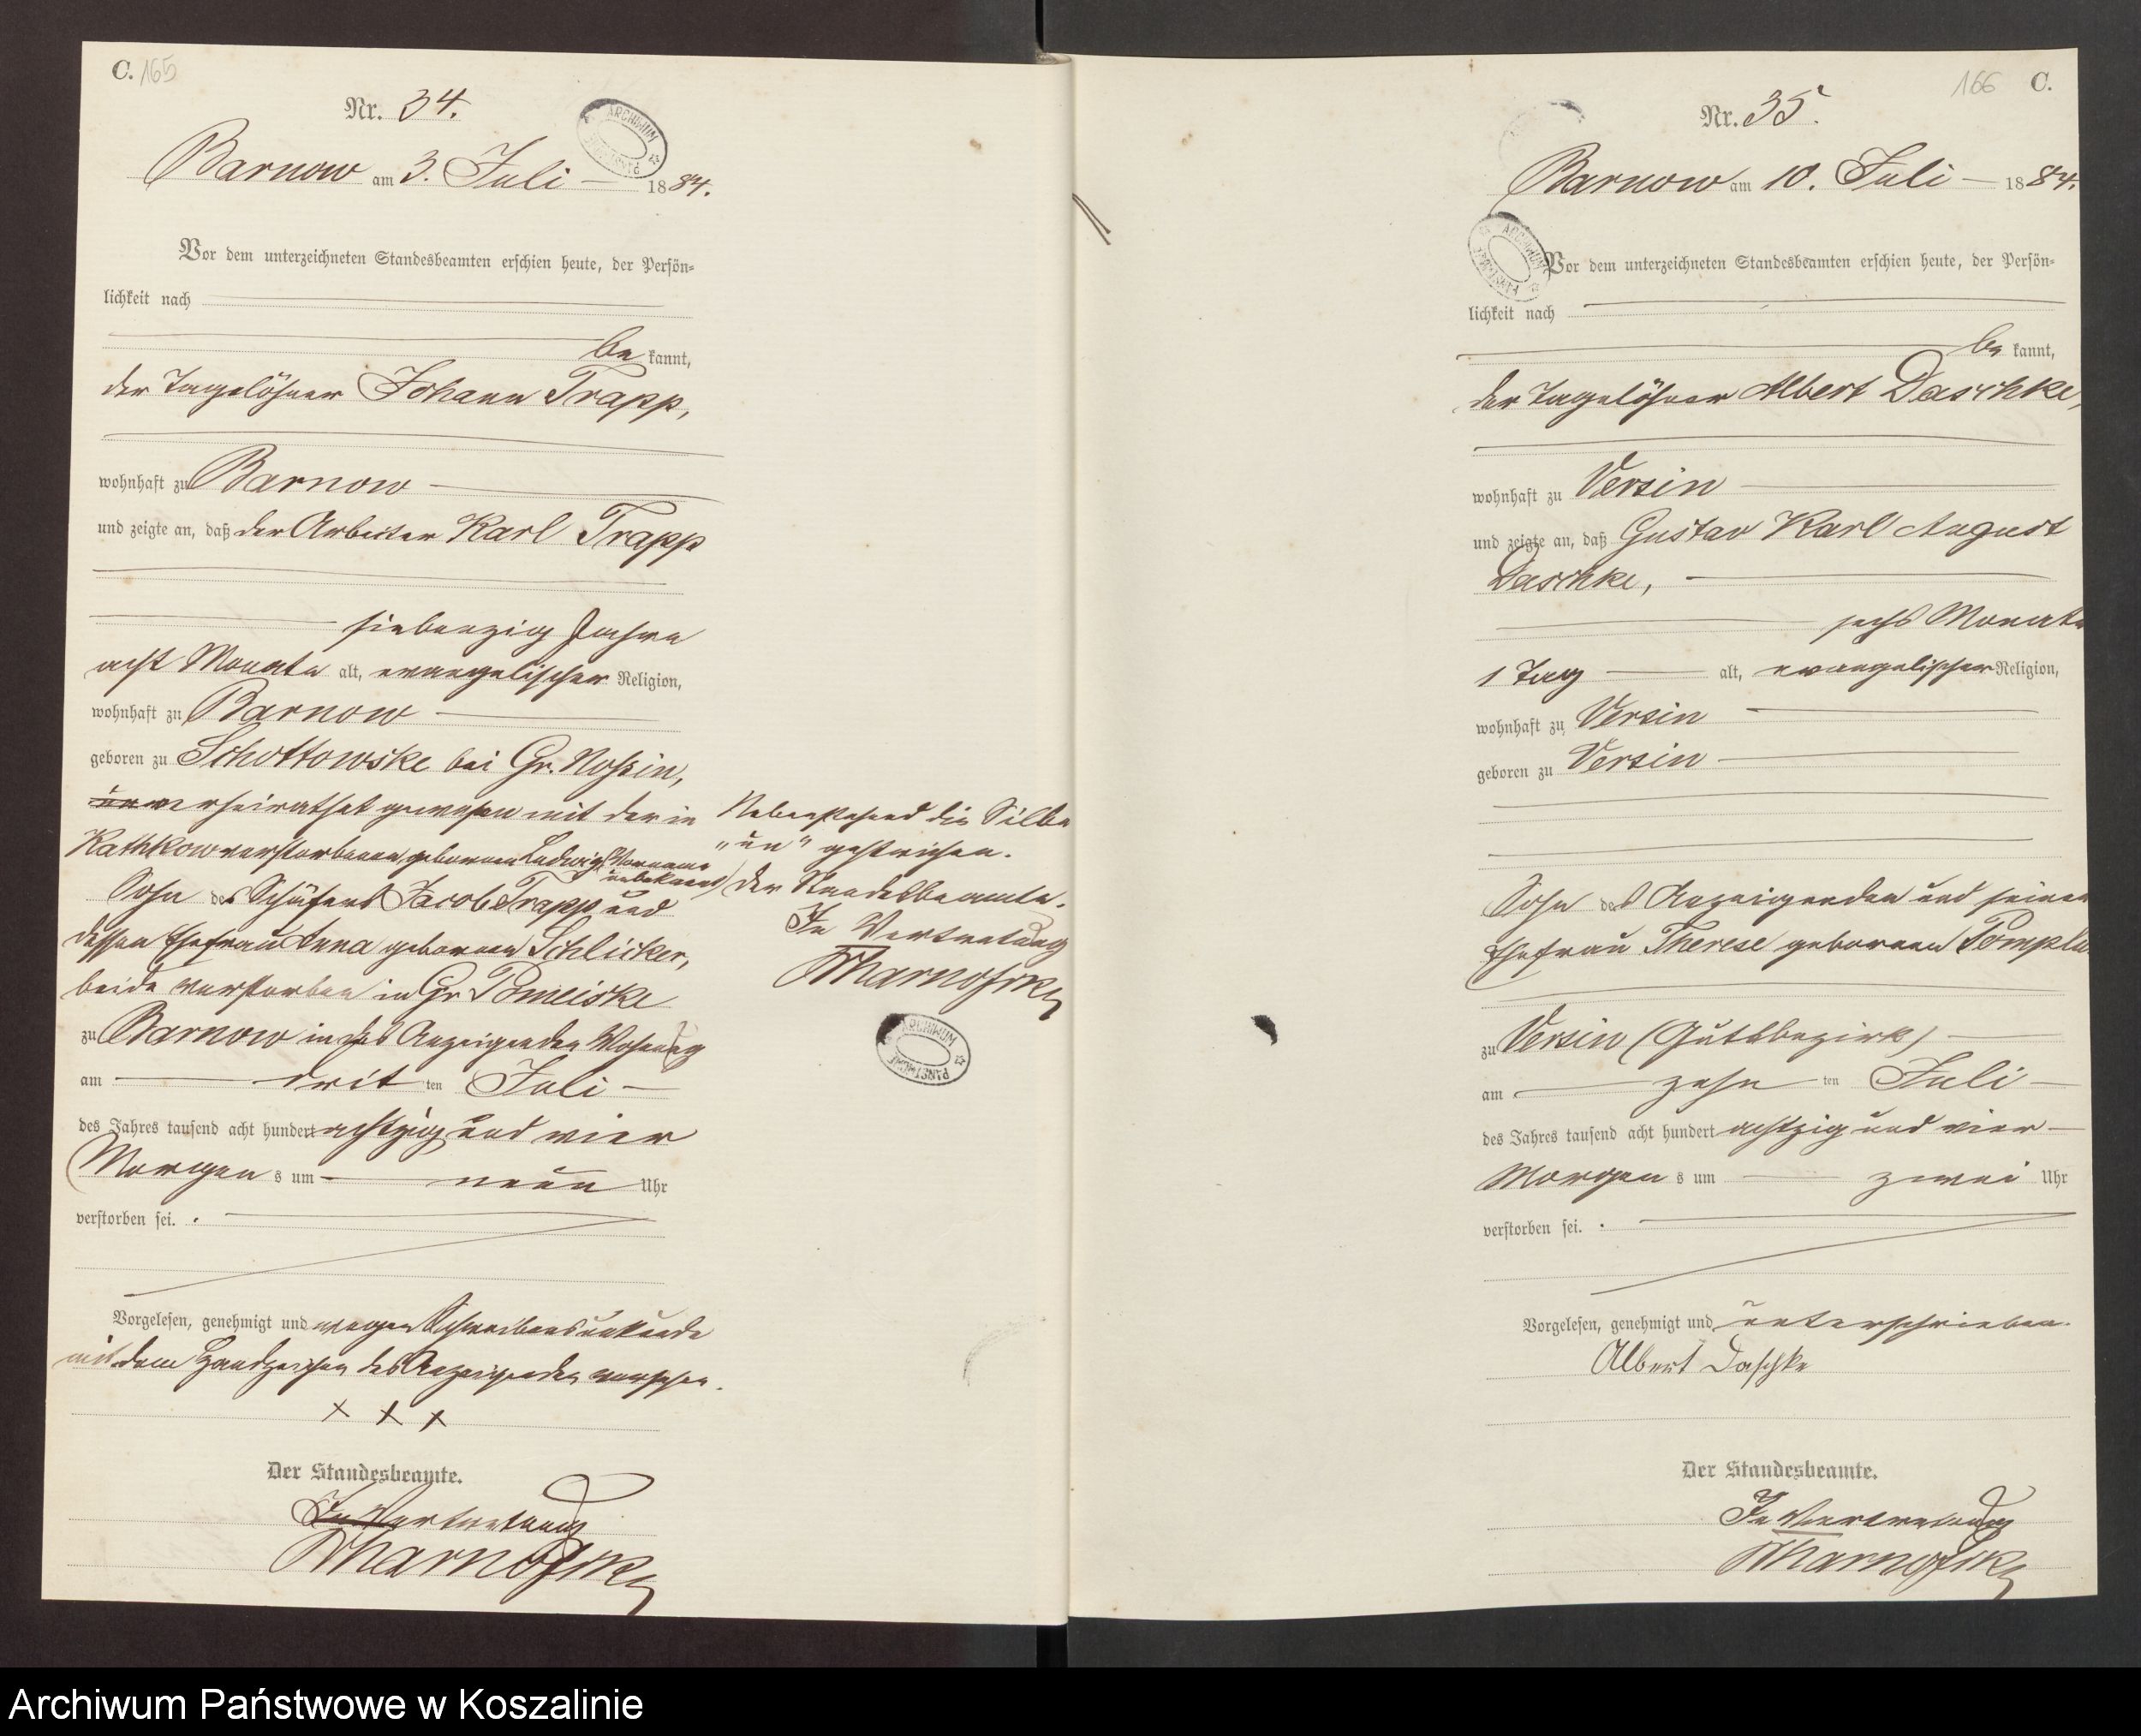 C. 165
Nr. 34.
Barnow am 3. Juli 1884.
Vor dem unterzeichneten Standesbeamten erschien heute, der Persön-
lichkeit nach
be kannt,
der Tagelöhner Johann Trapp,
wohnhaft zu Barnow
und zeigte an, daß der Arbeiter Karl Trapp
siebenzig Jahre
acht Monate alt, evangelischer Religion,
wohnhaft zu Barnow
geboren zu Schottowske bei Gr. Nossin,
un verheirathet gewesen mit der in
Kathkow verstorbenen, geborenen Ludwig (Vorname
unbekannt)
Sohn des Schäfers Jacob Trapp und
dessen Ehefrau Anna geborenen Schlicker,
beide verstorben in Gr. Pomeiske
zu Barnow in des Anzeigenden Wohnung
am drit ten Juli
des Jahres tausend acht hundert achtzig und vier
Morgen s um neun Uhr
verstorben sei.
Vorgelesen, genehmigt und wegen Schreibensunkunde
mit dem Handzeichen des Anzeigenden versehen.
x x x
Der Standesbeamte.
In Vertretung
Nebenstehend die Silbe
„un“ gestrichen.
Der Standesbeamte.
In Vertretung
ARCHIWUM PAŃSTWOWE
166 C.
Nr. 35.
Barnow am 10. Juli 1884.
Vor dem unterzeichneten Standesbeamten erschien heute, der Persön-
lichkeit nach
be kannt,
der Tagelöhner Albert Daschke,
wohnhaft zu Versin
und zeigte an, daß Gustav Karl August
Daschke,
sechs Monate
1 Tag alt, evangelischer Religion,
wohnhaft zu Versin
geboren zu Versin
Sohn des Anzeigenden und seiner
Ehefrau Therese geborenen
zu Versin (Gutsbezirk)
am zehn ten Juli
des Jahres tausend acht hundert achtzig und vier
Morgen s um zwei Uhr
verstorben sei.
Vorgelesen, genehmigt und unterschrieben.
Albert Daschke
Der Standesbeamte.
In Vertretung
Archiwum Państwowe w Koszalinie